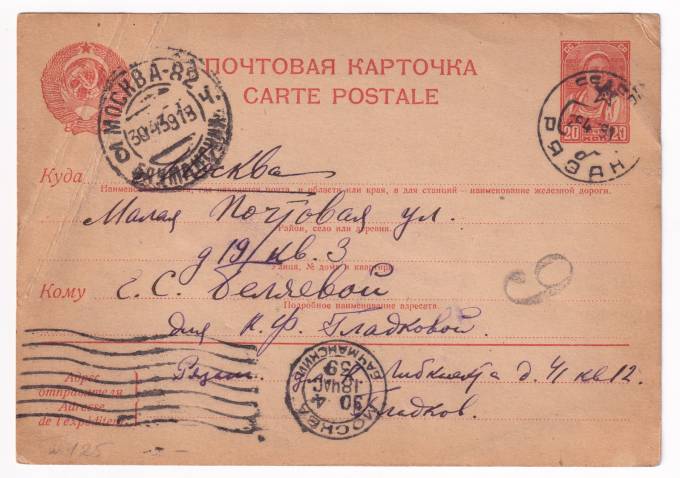 ПОЧТОВАЯ КАРТОЧКА
CARTE POSTALE
МОСКВА-82
30439 18
20 20
Куда Москва
Наименование места, где находится почта, и области или края, а для станций – наименование железной дороги.
Малая Почтовая ул.
Район, село или деревня.
д 19/ кв. 3
Улица, № дома и квартиры
Кому Е. С. Беляевой
Подробное наименование адресата.
для К. Ф. Гладковой.
9
Адрес отправителя
Adresse de l'expéditeur
Рязан. Либкнехта д. 41 кв 12.
Гладков.
МОСКВА
30 4
18 ЧАС
39
№ 125